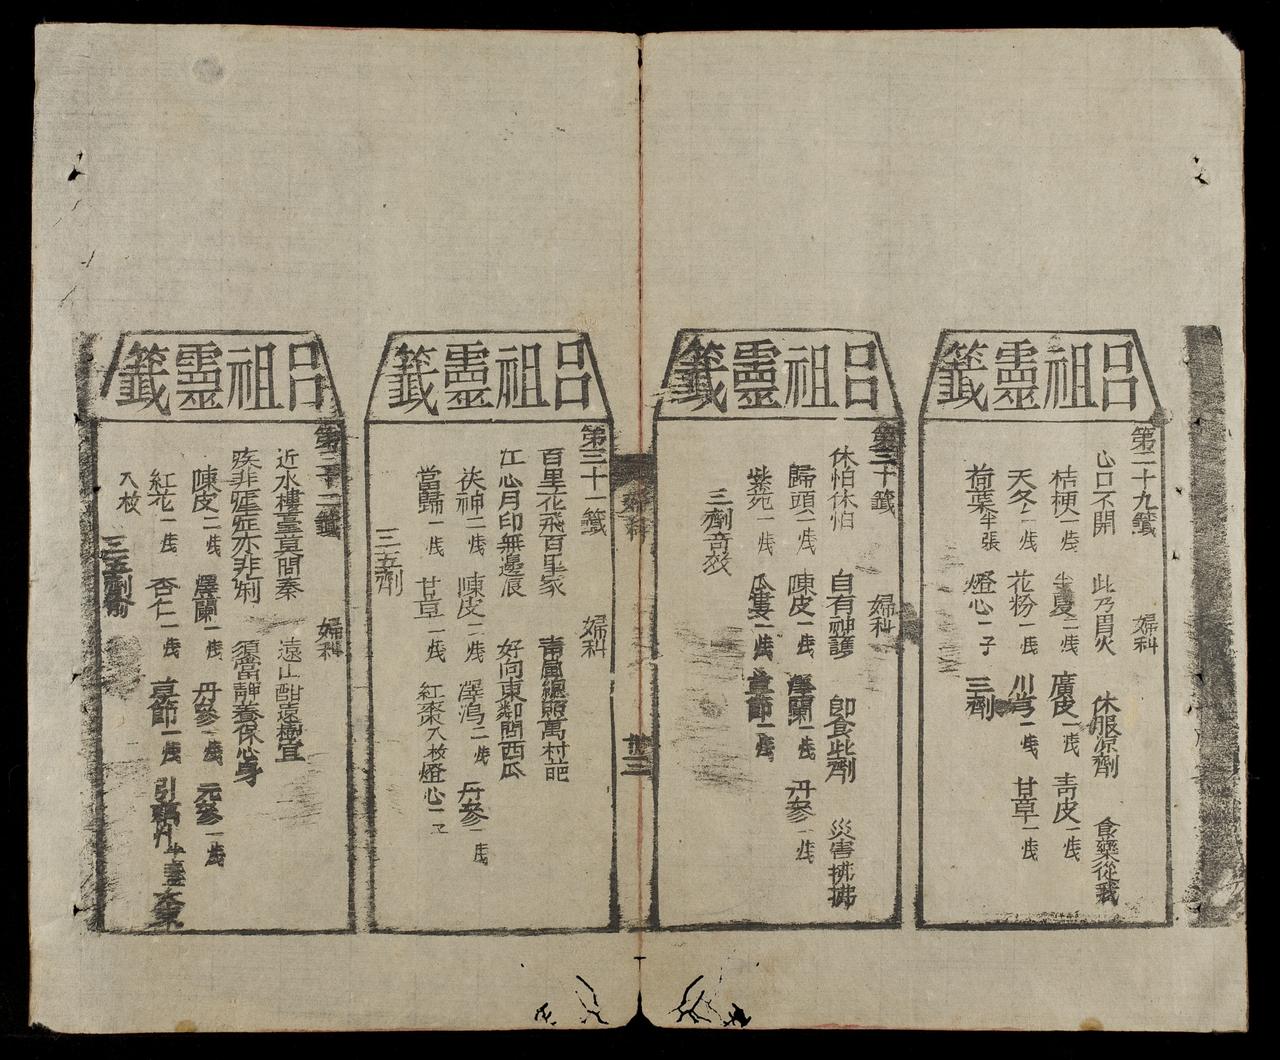 呂祖靈籤
第二十九籤 婦科
心口不開 此乃胃火 休服凉劑 食藥從我
桔梗一戔 半夏二戔 廣皮一戔 青皮一戔
天冬一戔 花粉一戔 川芎一戔 甘草一戔
荷葉半張 燈心一子 三劑
呂祖靈籤
第三十籤 婦科
休怕休怕 自有神護 即食此劑 災害拂拂
歸頭二戔 陳皮一戔 澤蘭一戔 丹參一戔
紫苑一戔 瓜蔞一戔 草節一戔
三劑奇效
婦科
廿三
呂祖靈籤
第三十一籤 婦科
百里花飛百里家 青風總照萬村葩
江心月印無邊辰 好向東鄰問西瓜
茯神二戔 陳皮一戔 澤瀉二戔 丹參一戔
當歸一戔 甘草一戔 紅棗八枚 燈心一子
三五劑
呂祖靈籤
第三十二籤 婦科
近水樓臺莫問秦 遠山酣遠極宜
疾非症亦非 須當靜養保心身
陳皮二戔 澤蘭一戔 丹參一戔 元參一戔
紅花一戔 杏仁一戔 草節一戔 引
八枚
三五劑愈